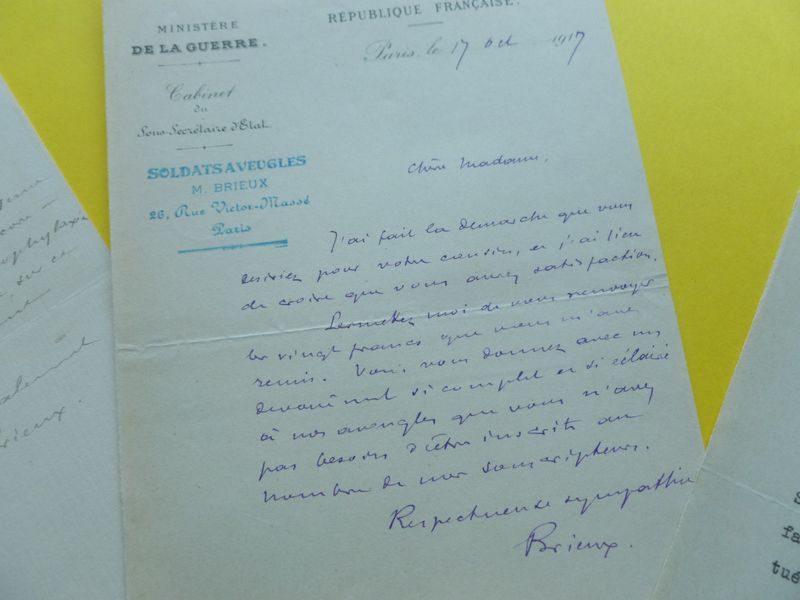 RÉPUBLIQUE FRANÇAISE.
MINISTÈRE
DE LA GUERRE.
Paris, le 17 Oct 1917
Cabinet
du
Sous-Secrétaire d'État.
SOLDATS AVEUGLES
M. BRIEUX
26, Rue Victor-Massé
Paris
Chère Madame,
J'ai fait la démarche que vous
désiriez pour votre cousin, et j'ai lieu
de croire que vous aurez satisfaction.
Permettez moi de vous renvoyer
les vingt francs que vous m'avez
remis. Vous, vous donnez avec un
dévouement si complet et si éclairé
à nos aveugles que vous n'avez
pas besoin d'être inscrite au
nombre de mes souscripteurs.
Respectueuse sympathie
Brieux.
sur ce
Brieux.
fa
tué